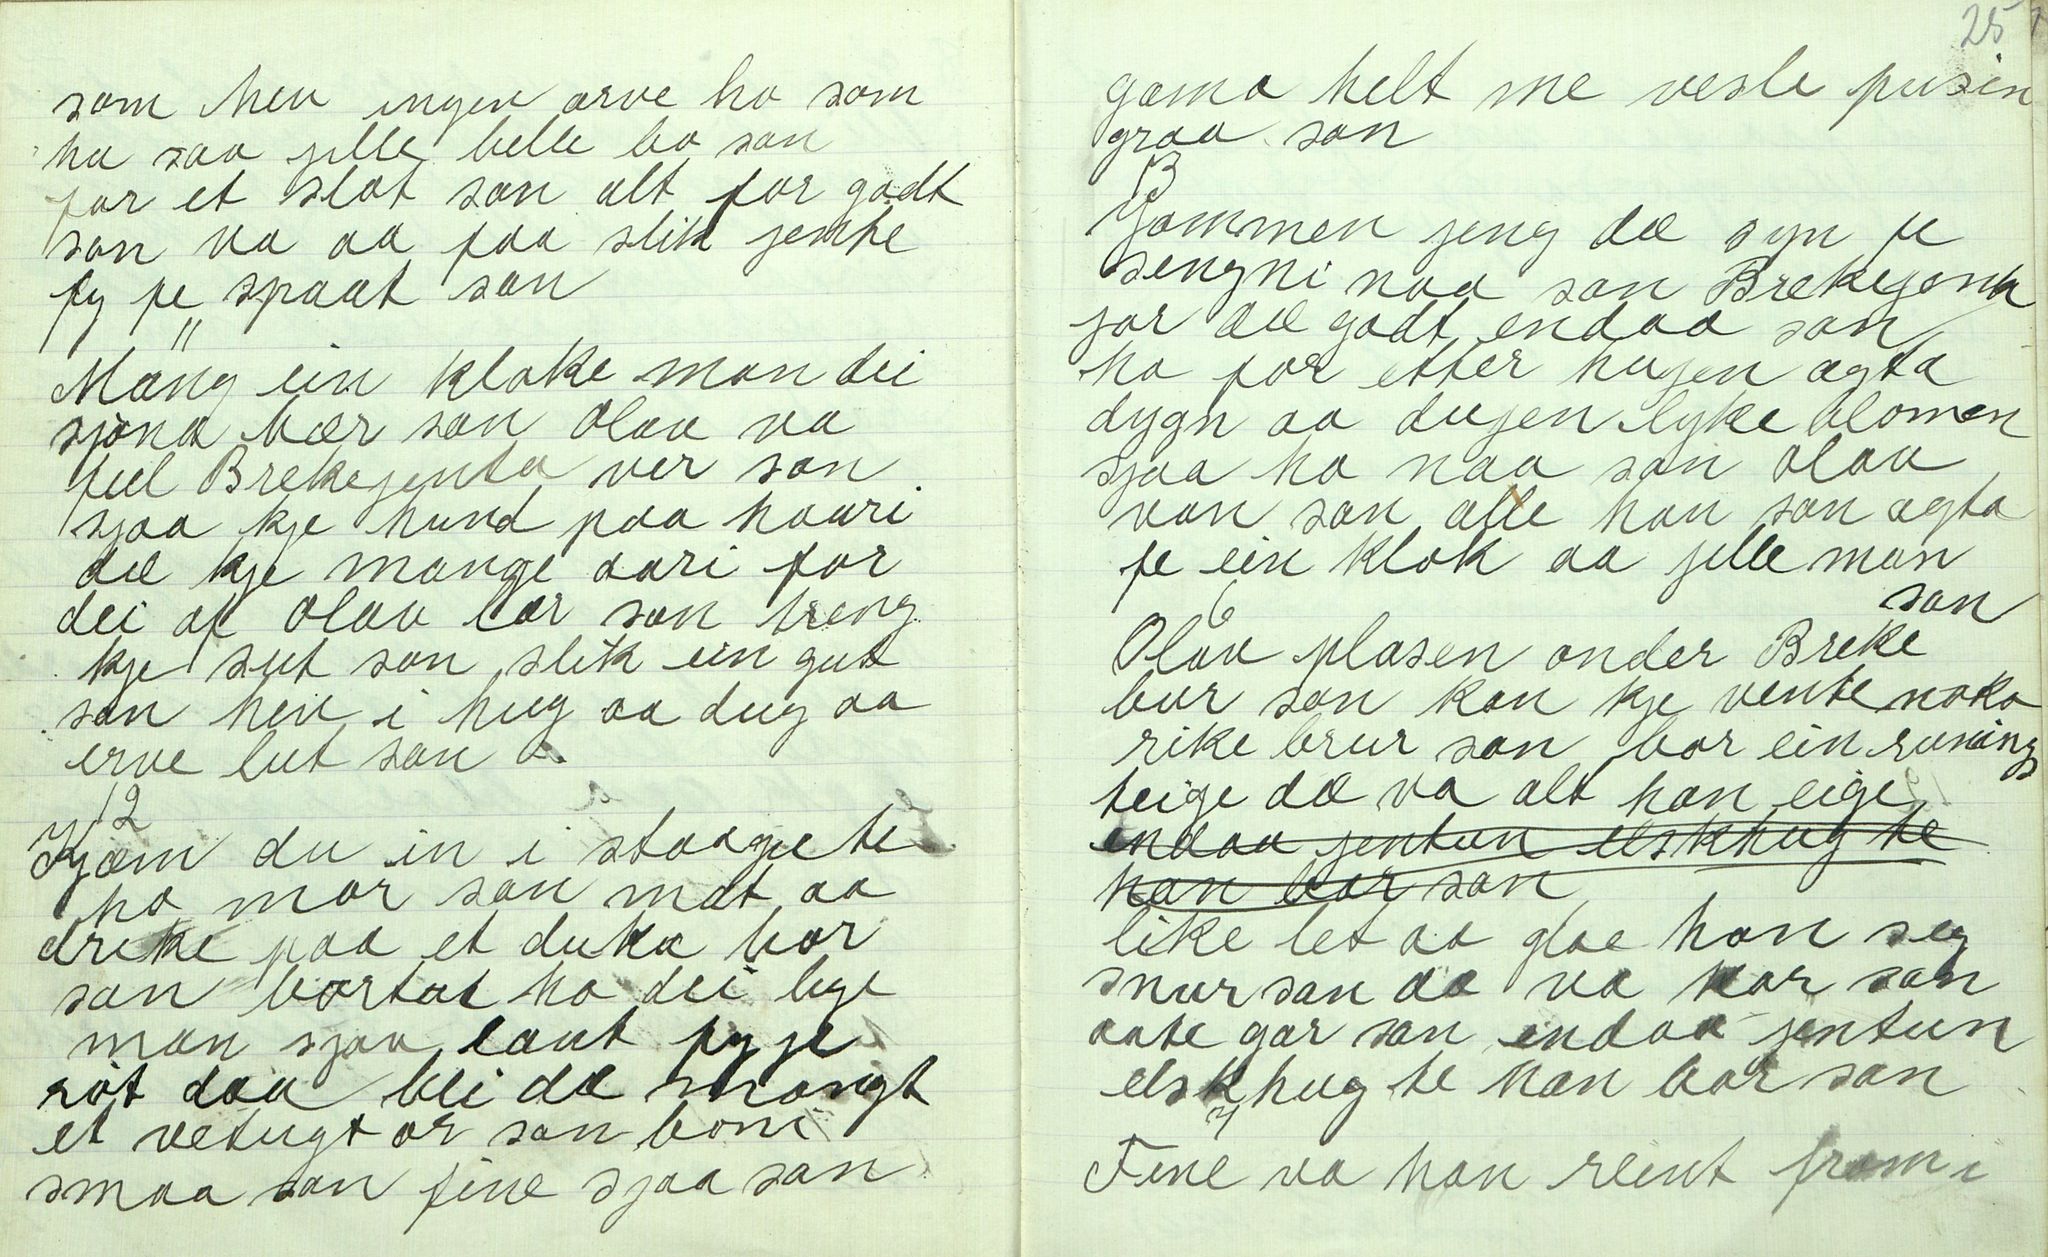 som hev ingen arve ho som
ho saa jille belle bo son
for et slot son alt for godt
son va aa faa slik jente
fy fe spaat son
11
Mæng ein kloke man dei
sjønd bær son Olav va
feel Brekejenta ver son
sjaa kje hund paa haari
dæ kje mange aari for
dei af Olav lær son treng
kje sut son slik ein gut
son hev i hug aa dug aa
erve lut son
12
Kjæm du in i staagje te
ho mor son mat aa
drikke paa et duka bor
son bortat ho dei lye
man sjaa laut fy je
røt daa bli dæ mangt
et vetugt or son boni
smaa son fine sjaa son
25
gama helt me vesle pusin
graa son
13
Jommen jeng dæ syn fe
sengni naa son Brekejenta
jor dæ godt endaa son
ho for etter hugen agta
dygn aa dugen lyke blomen
sjaa ho naa son Olav
van son alle han son agta
fe ein klok aa jille man
son
6
Olav plasen onder Breke
bur son kan kje vente noko
rike brur son bor ein runing
teige dæ va alt han eige
endaa jentun elskhug te
han bar son
like let aa glae han seg
snur son dæ va kar son
aate gar son endaa jentun
elskhug te han bar son
7
Fine va han reint fram i